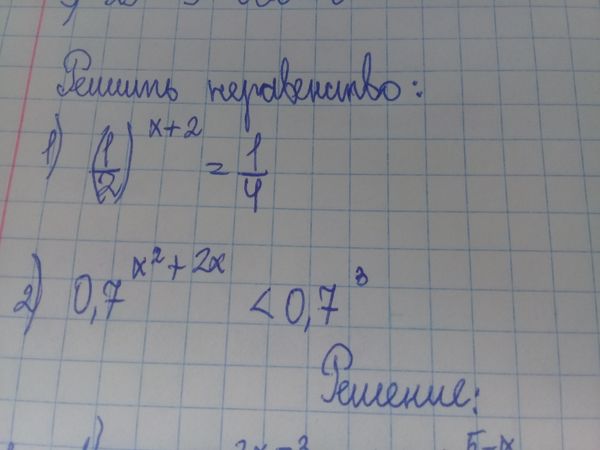 Решить неравенство:
1) (1/2)^(x+2) = 1/4
2) 0,7^(x²+2x) < 0,7³
Решение:
5-x